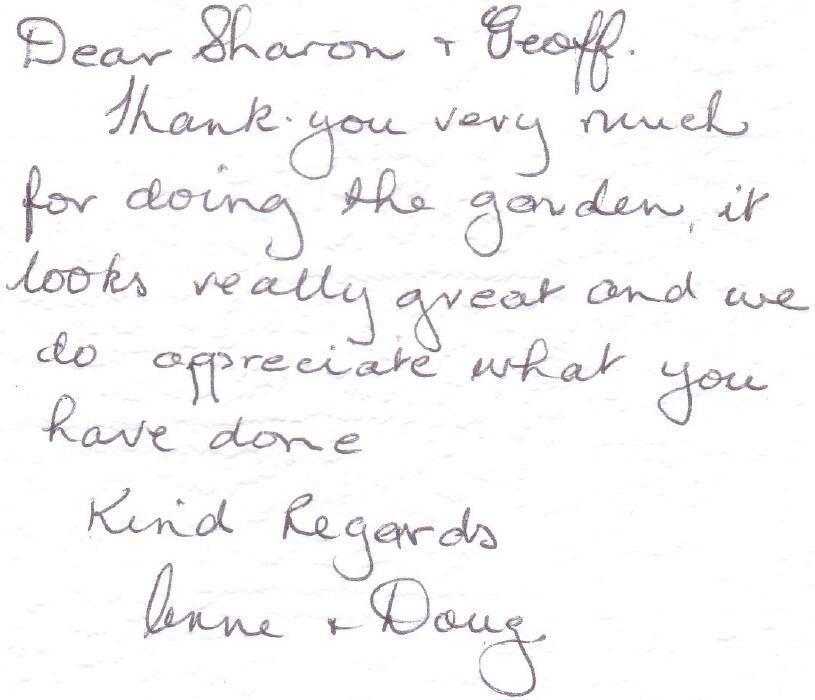 Dear Sharon + Geoff.
Thank you very much
for doing the garden, it
looks really great and we
do appreciate what you
have done
Kind Regards
Anne + Doug